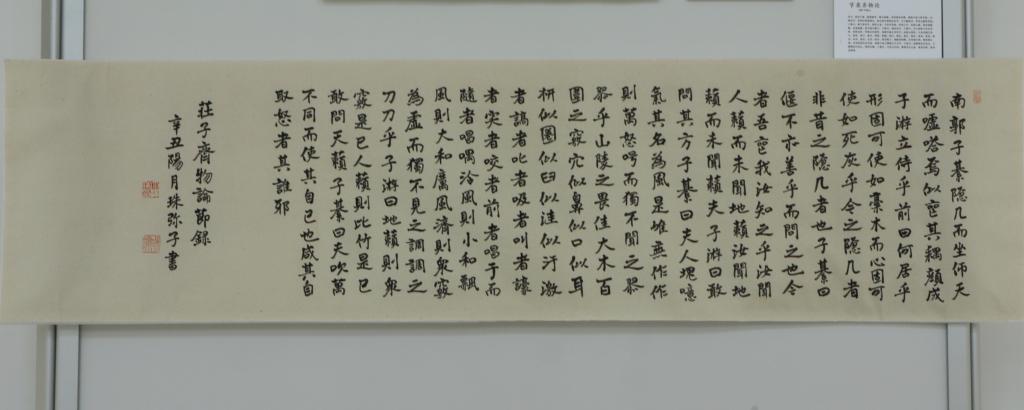 南郭子綦隐几而坐仰天
而嘘嗒焉似喪其耦顏成
子游立侍乎前曰何居乎
形固可使如槀木而心固可
使如死灰乎今之隐几者
非昔之隐几者也子綦曰
偃不亦善乎而問之也今
者吾喪我汝知之乎汝聞
人籟而未聞地籟汝聞地
籟而未聞籟夫子游曰敢
問其方子綦曰夫大塊噫
氣其名為風是唯無作作
則萬怒呺而獨不聞之翏
翏乎山陵之畏佳大木百
圍之竅穴似鼻似口似耳
枅似圈似臼似洼似汙激
者謞者叱者吸者叫者譹
者宎者咬者前者唱于而
隨者唱喁泠風則小和飄
風則大和厲風濟則衆竅
為虛而獨不見之調調之
刀刀乎子游曰地籟則衆
竅是已人籟則比竹是已
敢問天籟子綦曰夫吹萬
不同而使其自已也咸其自
取怒者其誰邪
莊子齊物論節錄
辛丑陽月珠弥子書